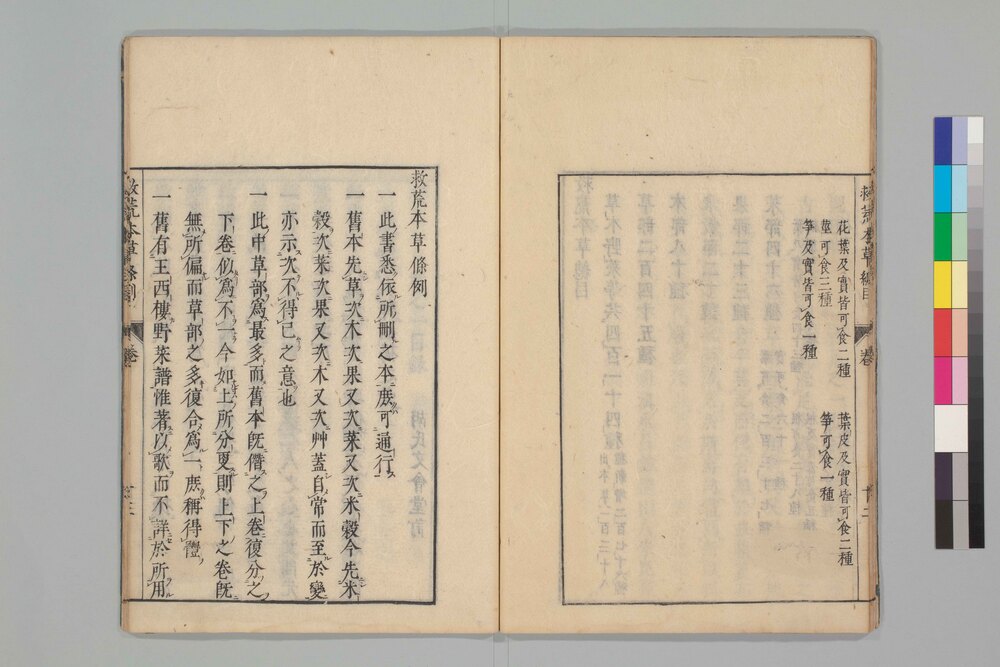 救荒本草總目
花葉及實皆可食二種
葉皮及實皆可食二種
莖可食三種
筍可食一種
筍及實皆可食一種
救荒本草條例
一此書悉依所刪之本庶可通行
一舊本先草次木次果又次菜又次米穀今先米
穀次菜次果又次木又次艸蓋自常而至於變
亦示次不得已之意也
一此中草部爲最多而舊本旣僭之上卷復分之
下卷似爲不一今如上所分叓則上下之卷旣
無所偏而草部之多復合爲一庶稱得體
一舊有王西樓野菜譜惟著以歌而不詳於所用
救荒本草條例